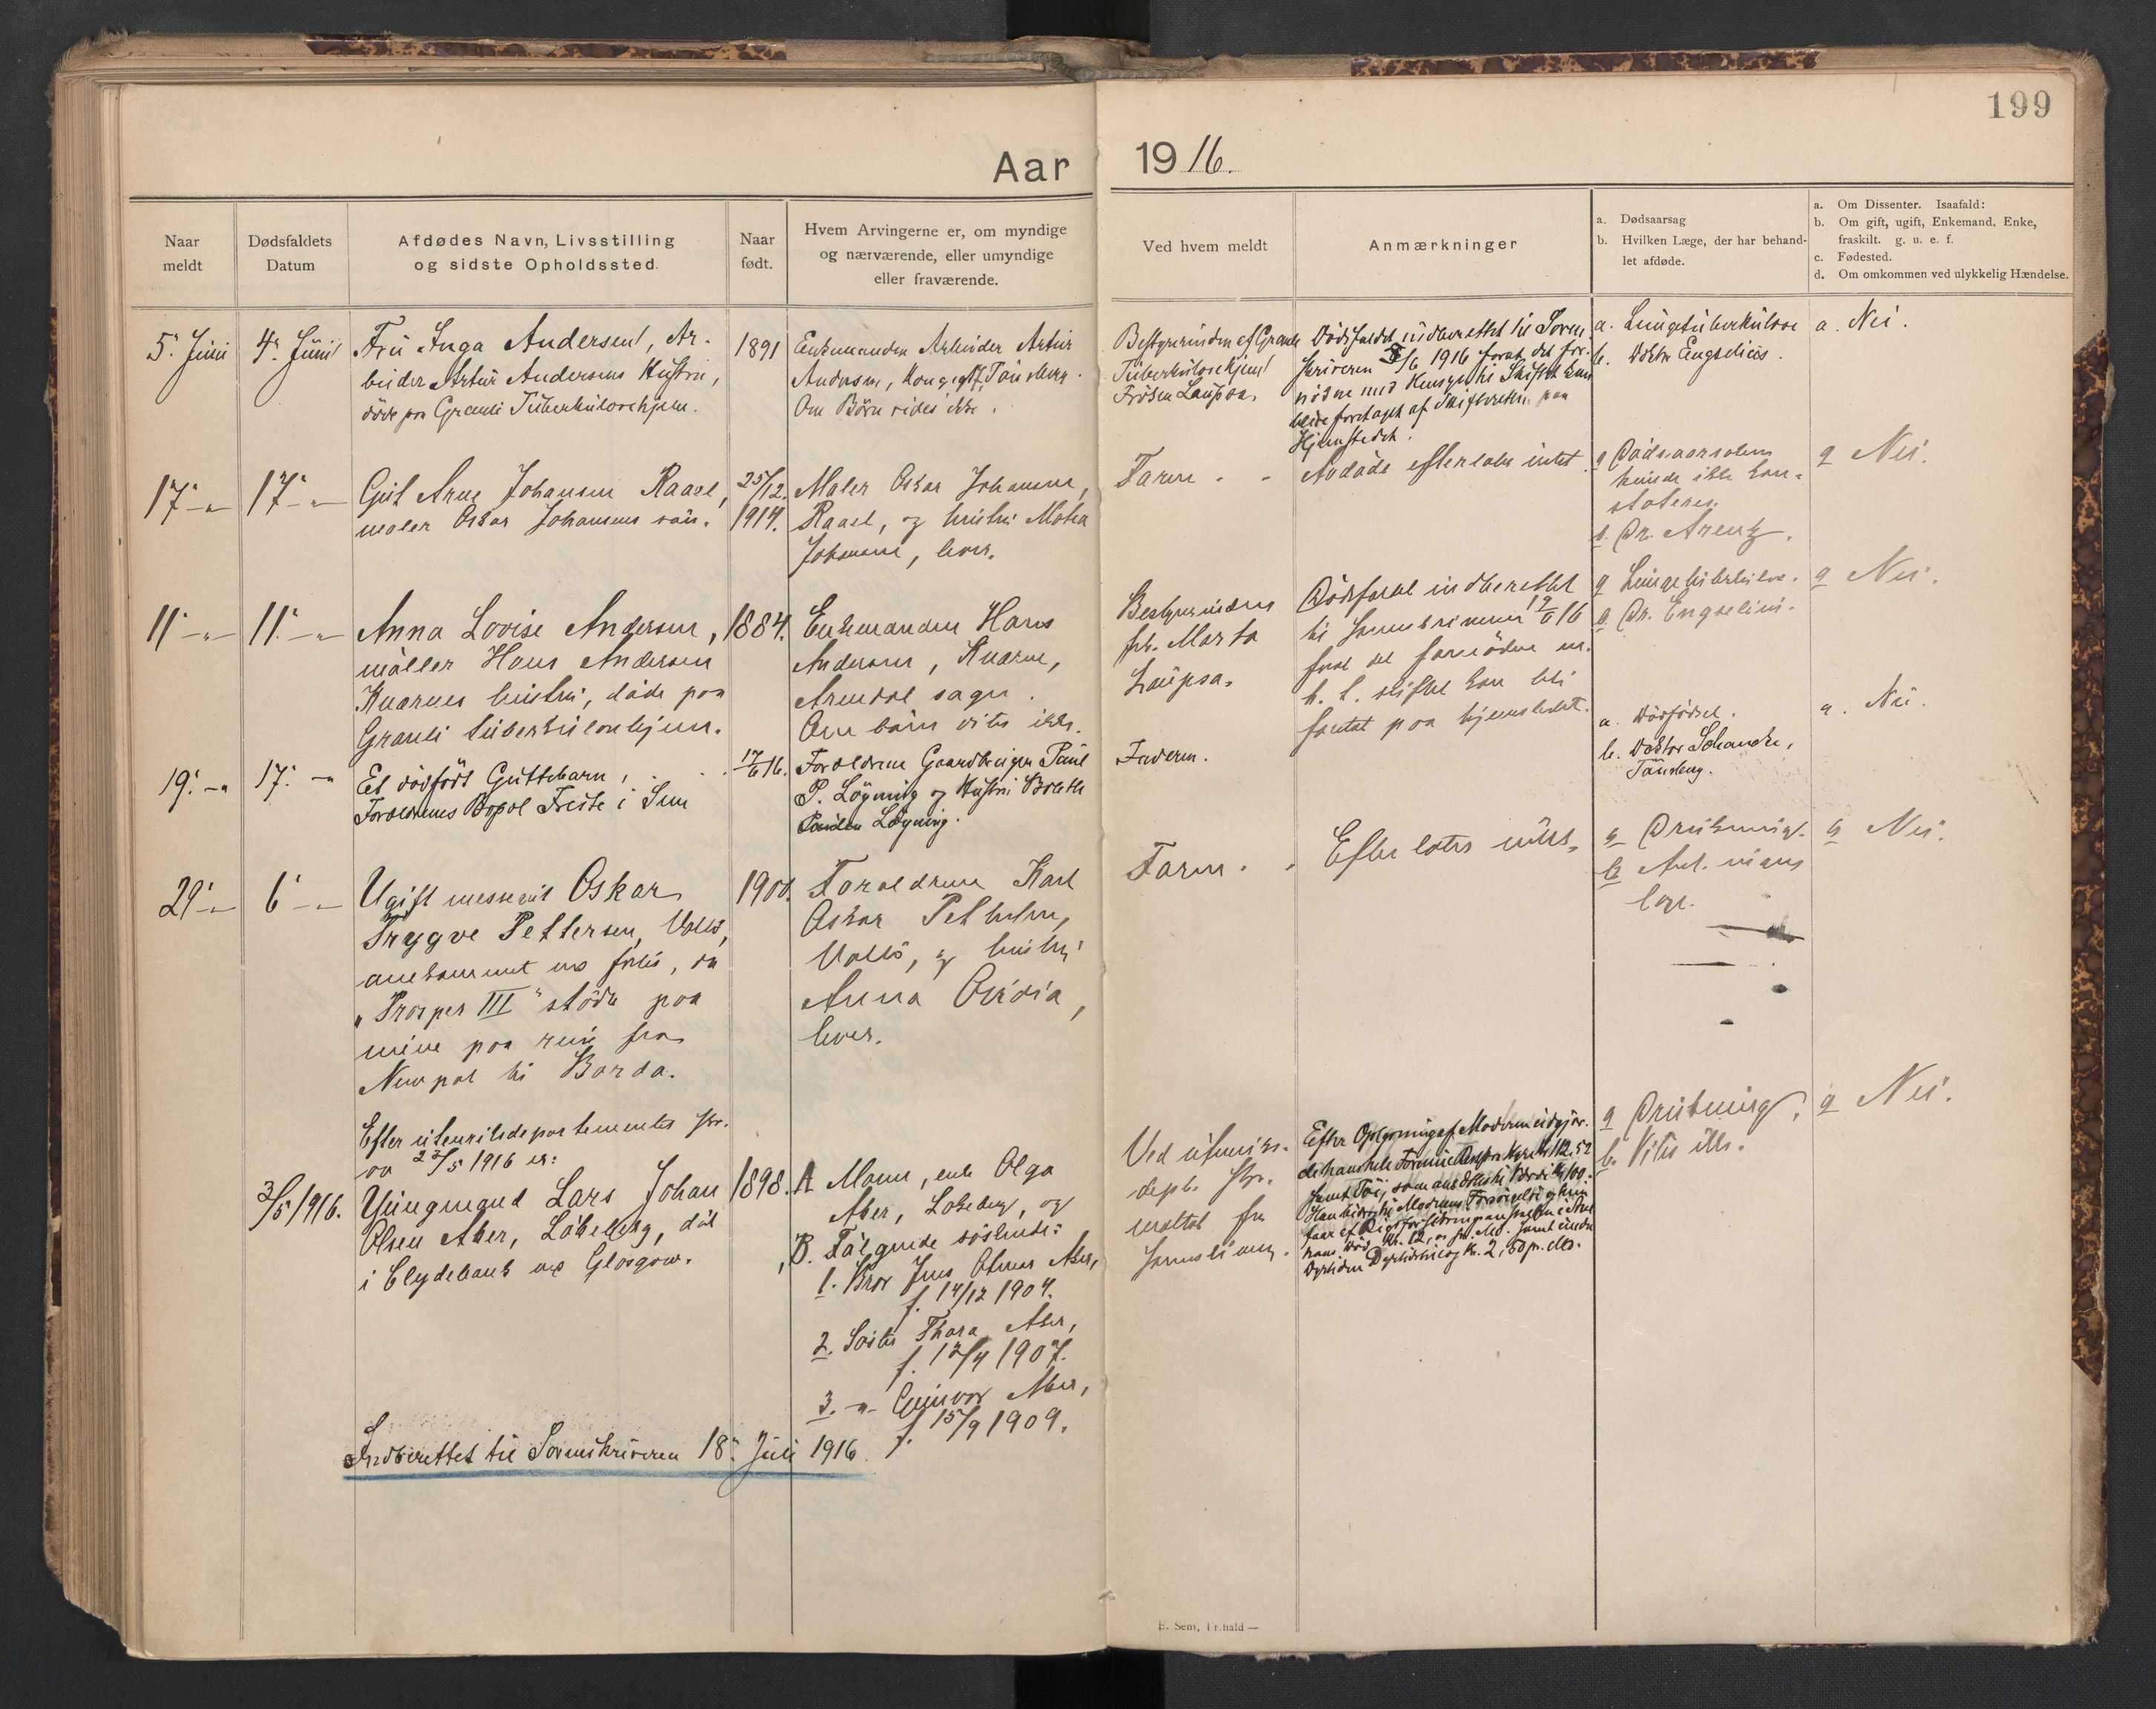 199
Aar 1916.
Naar meldt
Dødsfaldets Datum
Afdødes Navn, Livsstilling og sidste Opholdssted.
Naar født.
Hvem Arvingerne er, om myndige og nærværende, eller umyndige eller fraværende.
Ved hvem meldt
Anmærkninger
a. Dødsaarsag
b. Hvilken Læge, der har behandlet afdøde.
a. Om Dissenter. Isaafald:
b. Om gift, ugift, Enkemand, Enke, fraskilt. g. u. e. f.
c. Fødested.
d. Om omkommen ved ulykkelig Hændelse.
5. Juni
4. Juni
Fru Inga Andersen, Ar-
beider Artur Andersens Hustru,
døde paa Grauli Tuberkulosehjem.
1891
Enkemanden Arbeider Artur
Andersen, Tönsberg.
Om Börn vides ikke.
Bestyrerinden af Grauli
Tuberkulosehjem
Fröken Laupsa.
Dödsfaldet indberettet til Soren-
skriveren 5/6 1916 forat det for-
nödne med Hensyn til Skiftet kan
blive foretaget af Skifteretten paa
Hjemstedet.
a. Lungetuberkulose
b. Doktor Engelius.
a. Nei.
17 -"-
17 -"-
Gut Arne Johansen Raael,
maler Oskar Johansens sön.
25/12.
1914.
Maler Oskar Johansen,
Raael, og hustru
Johansen, lever.
Faren
Avdöde efterlater intet.
a Dödsaarsaken
kunde ikke kon-
stateres.
b. Dr. Arentz.
a Nei.
11 -"-
11 -"-
Anna Lovise Andersen,
möller Hans Andersen
Kvarnes hustru, döde paa
Grauli tuberkulosehjem.
1884.
Enkemanden Hans
Andersen,
Arendal sogn.
Om barn vites ikke.
Bestyrerinden
frk. Marta
Laupsa.
Dödsfald indberettet
til sorenskriveren 19/6 16
forat det fornödne m.
h. t. skiftet kan bli
foretat paa hjemstedet.
a Lungetuberkulose.
b Dr. Engelius.
a Nei.
19. -"-
17. -"
Et dödfödt Guttebarn,
Foræeldrenes Bopæl Freste i Sem
17/6 16.
Forældrene Gaardbruger Paul
P. Lögning og Hustru
Lögning.
Faderen.
a. Dödfödsel.
b. Doktor Schancke,
Tönsberg.
a. Nei.
29 -"-
6 -"-
Ugift messegut Oskar
Trygve Pettersen, Vallö,
omkommet ved forlis, da
"Prosper III" stötte paa
mine paa reise fra
til
1900.
Forældrene Karl
Oskar Pettersen,
Vallö, og hustru
Anna
lever.
Faren.
Efterlater intet.
a Drukning.
b Ant. ingen
læge.
a Nei.
Efter utenriksdepartementets skr.
av 23/5 1916 er:
3/5 1916.
Yungmand Lars Johan
Olsen Aker, Lökeberg, död
i Clydebank ved Glasgow.
1898.
A Moren, enke Olga
Aker, Lökeberg, og
B. Fölgende söskende:
1. Bror Jens Aker,
f. 14/12 1904.
2. Söster Thora Aker,
f. 12/4 1907.
3. -"- Gunvor Aker,
f. 15/9 1909.
Ved utenriks-
dept. skr.
mottat fra
Efter Oplysning af Moderen
samt Töi,
hans Död Kr. 12, pr. Md. samt
Dyrtidstillæg Kr. 2,50 pr. Md.
a Drukning.
b Vites ikke.
a Nei.
Indberettet til Sorenskriveren 18. Juli 1916
E. Sem, Fr.hald —